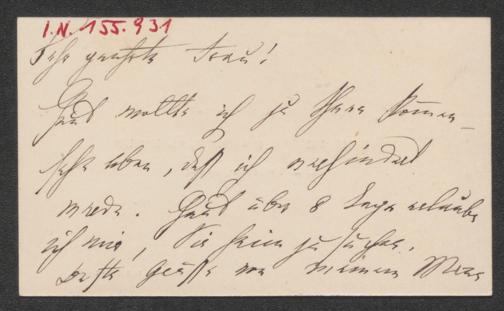 I.N. 155.931
Sehr geehrte Frau!
Heut wollte ich zu Ihnen kommen –
sehe aber, daß ich verhindert
werde. Heut über 8 Tage erlaube
ich mir, Sie heim zu suchen.
Beste Grüße von meinem Mann